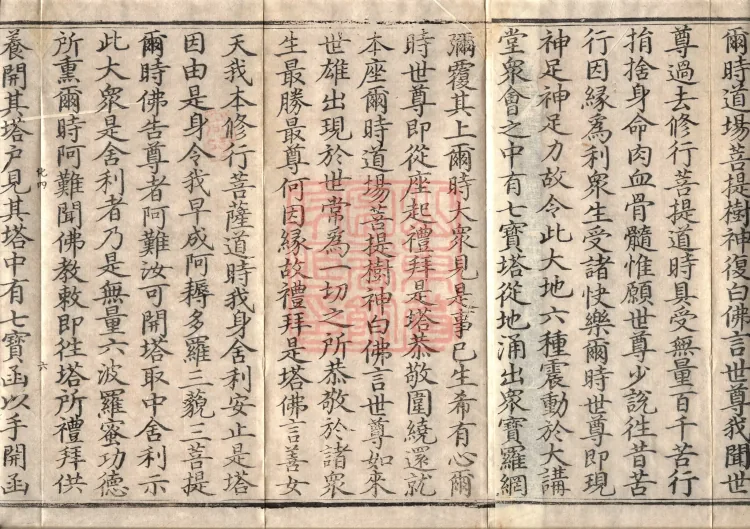 爾時道場菩提樹神復白佛言世尊我聞世
尊過去修行菩提道時具受無量百千苦行
捐捨身命肉血骨髓惟願世尊少說徃昔苦
行因縁爲利衆生受諸快樂爾時世尊即現
神足神足力故令此大地六種震動於大講
堂衆會之中有七寶塔從地涌出衆寶羅網
彌覆其上爾時大衆見是事已生希有心爾
時世尊即從座起禮拜是塔恭敬圍繞還就
本座爾時道場菩提樹神白佛言世尊如來
世雄出現於世常爲一切之所恭敬於諸衆
生最勝最尊何因縁故禮拜是塔佛言善女
天我本修行菩薩道時我身舍利安止是塔
因由是身令我早成阿耨多羅三藐三菩提
爾時佛告尊者阿難汝可開塔取中舍利示
此大衆是舍利者乃是無量六波羅蜜功德
所熏爾時阿難聞佛教敕即徃塔所禮拜供
化四 六
養開其塔户見其塔中有七寶函以手開函